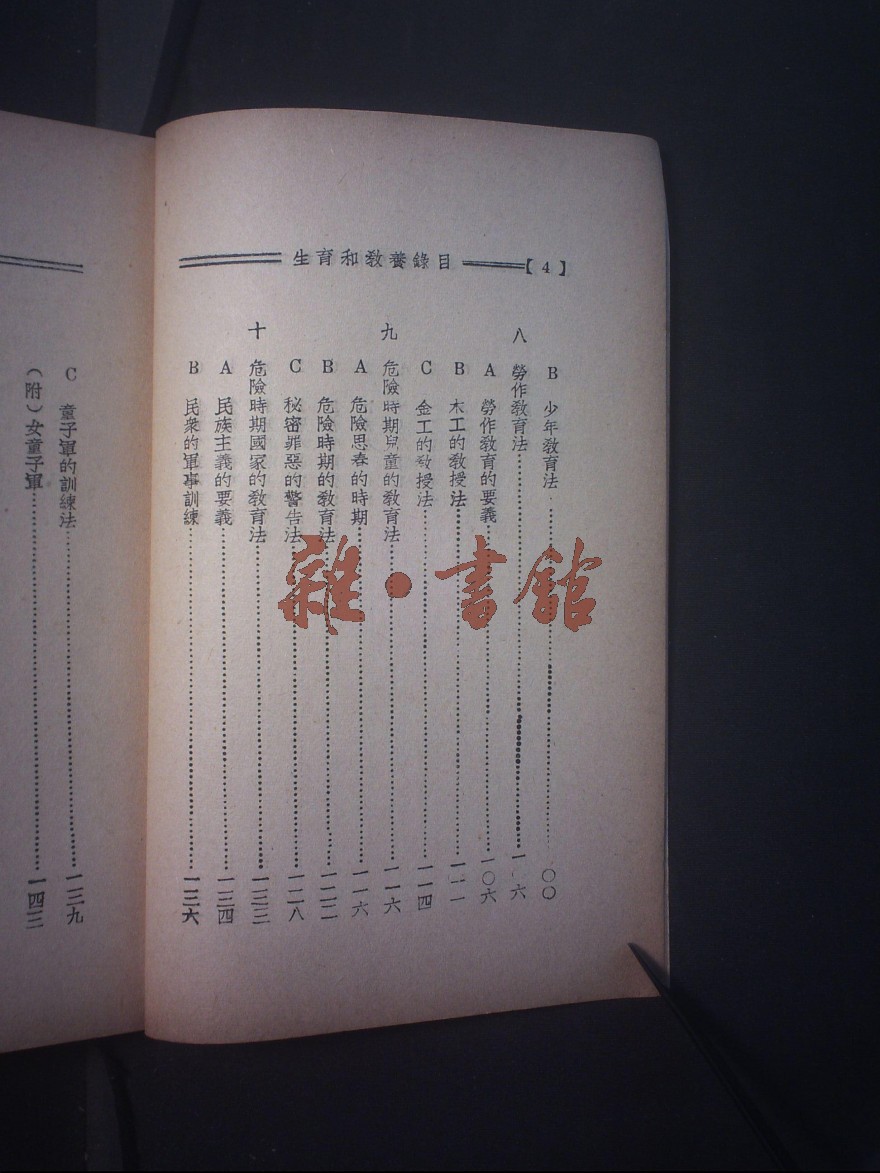 生育和教養錄目【4】
B 少年教育法……〇〇
八 勞作教育法……一〇六
A 勞作教育的要義……一〇六
B 木工的教授法……一一一
C 金工的教授法……一一四
九 危險時期兒童的教育法……一一六
A 危險思春的時期……一一六
B 危險時期的教育法……一二二
C 秘密罪惡的警告法……一二八
十 危險時期國家的教育法……一三三
A 民族主義的要義……一三四
B 民衆的軍事訓練……一三六
C 童子軍的訓練法……一三九
（附）女童子軍……一四三
雜·書館